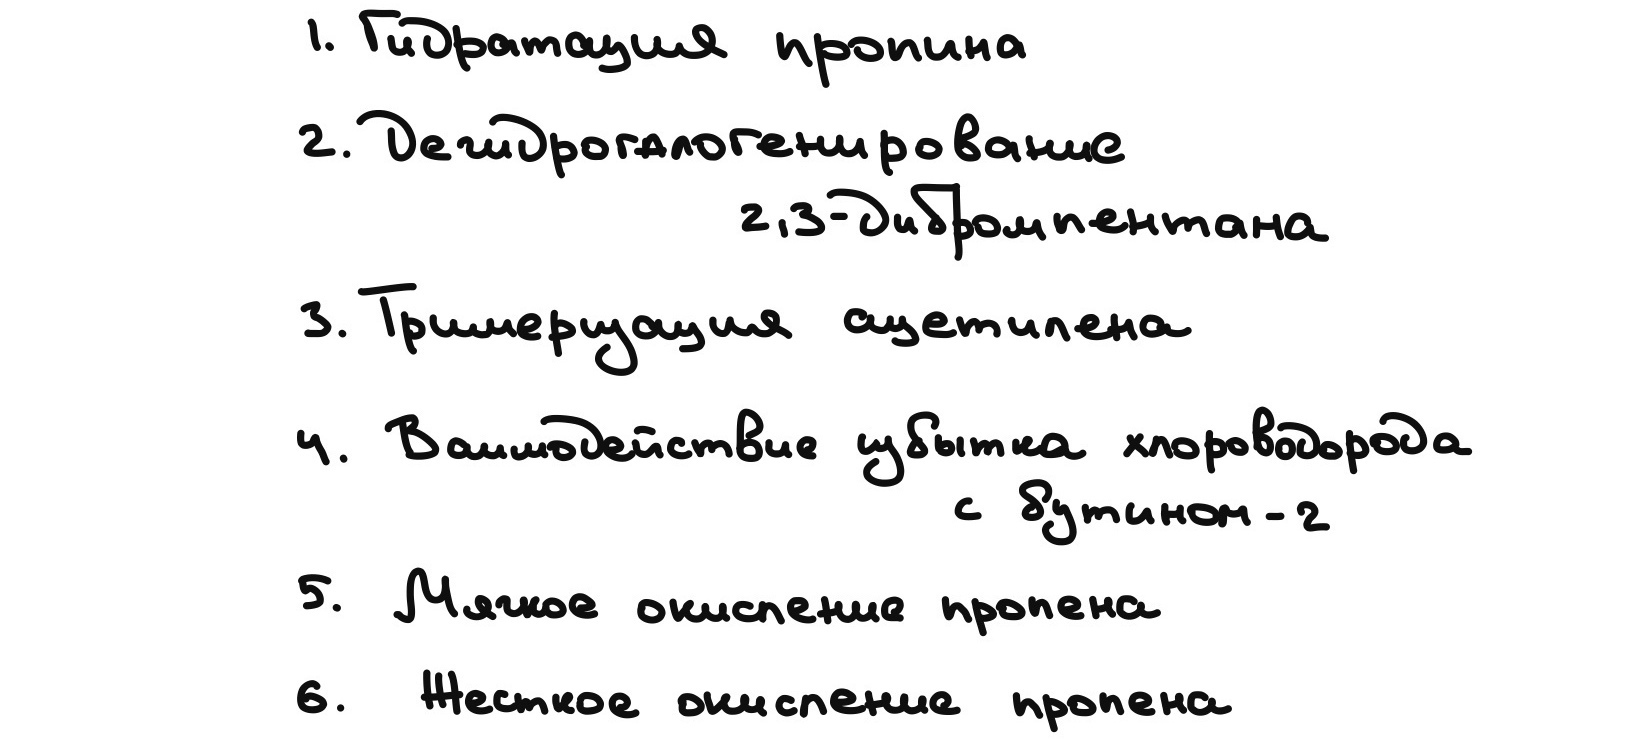 1. Гидратация пропина
2. Дегидрогалогенирование
2,3-дибромпентана
3. Тримеризация ацетилена
4. Взаимодействие избытка хлороводорода
с бутином-2
5. Мягкое окисление пропена
6. Жесткое окисление пропена